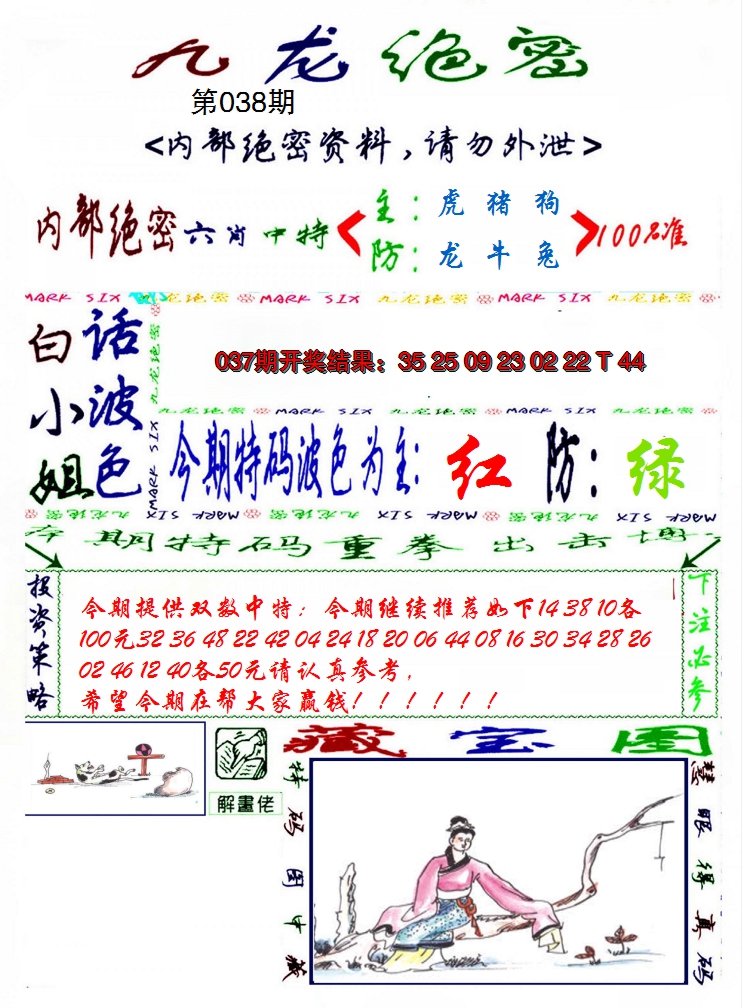 九龙绝密
第038期
<内部绝密资料,请勿外泄>
内部绝密六肖中特
主:虎猪狗
防:龙牛兔
100%准
MARK SIX 九龙绝密 MARK SIX 九龙绝密 MARK SIX 九龙绝密
白小姐
话波色
九龙绝密 MARK SIX
037期开奖结果：35 25 09 23 02 22 T 44
九龙绝密 MARK SIX 九龙绝密 MARK SIX 九龙绝密
今期特码波色为主:红 防:绿
MARK SIX 九龙绝密 MARK SIX 九龙绝密 MARK SIX 九龙绝密
本期特码重拳出击博
投资策略
今期提供双数中特；今期继续推荐如下14 38 10各
100元32 36 48 22 42 04 24 18 20 06 44 08 16 30 34 28 26
02 46 12 40各50元请认真参考,
希望今期在帮大家赢钱！！！！！！
下注必参
藏宝图
解畫佬
特码图中藏
慧眼得真码